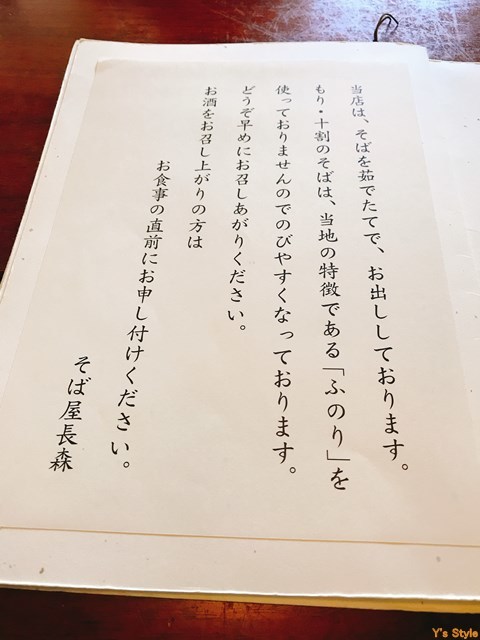 当店は、そばを茹でたてで、お出ししております。
もり・十割のそばは、当地の特徴である「ふのり」を
使っておりませんのでのびやすくなっております。
どうぞ早めにお召しあがりください。
お酒をお召し上がりの方は
お食事の直前にお申し付けください。
そば屋長森
Y's Style